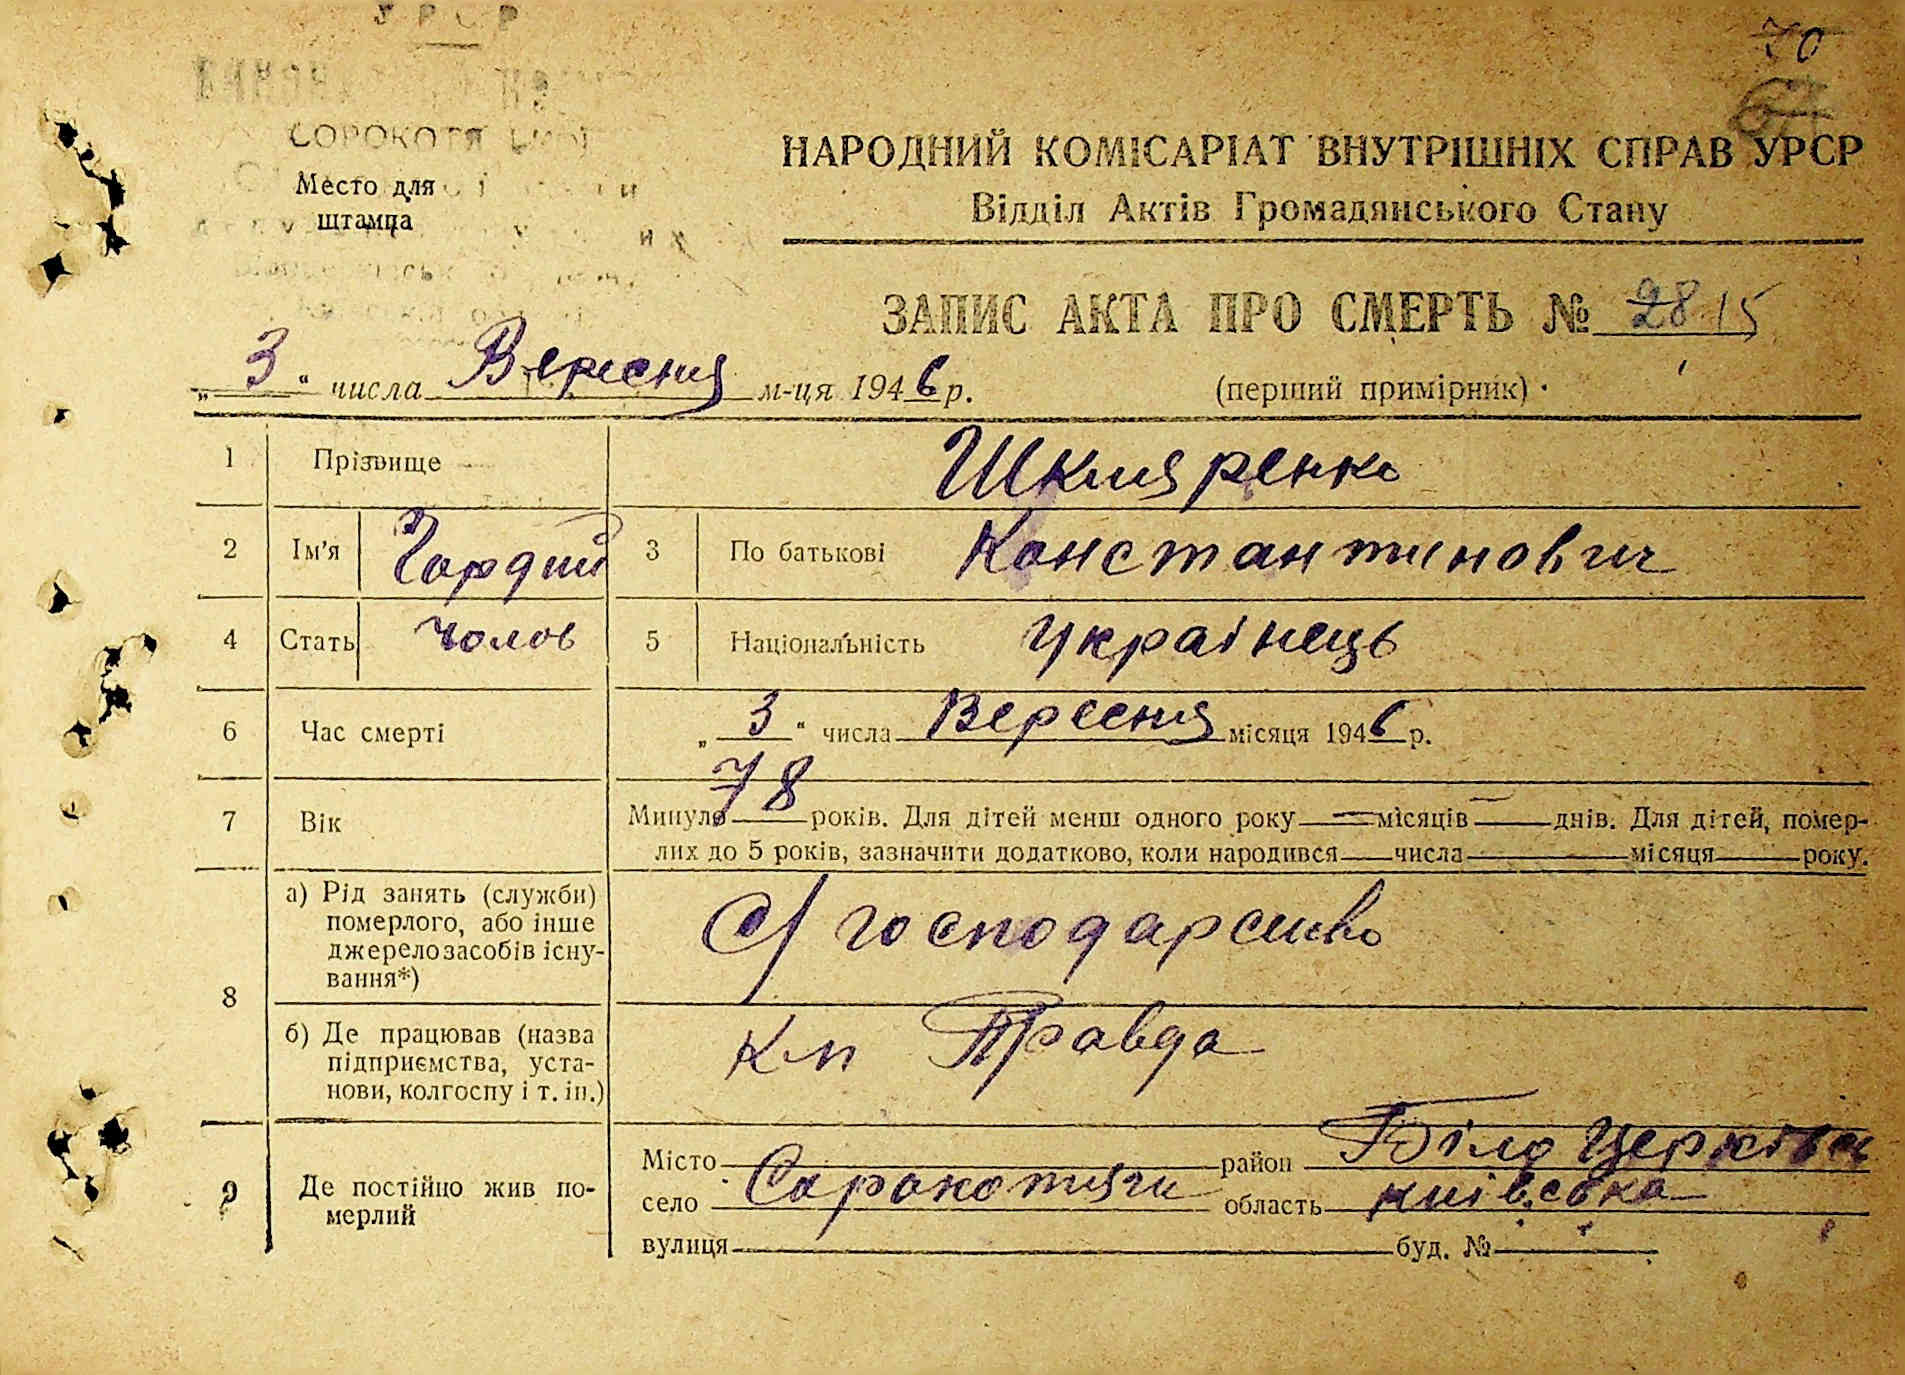 УРСР
70
Место для
штампа
НАРОДНИЙ КОМІСАРІАТ ВНУТРІШНІХ СПРАВ УРСР
Відділ Актів Громадянського Стану
ЗАПИС АКТА ПРО СМЕРТЬ № 15
„3“ числа Вересня м-ця 1946 р. (перший примірник)
1 Прізвище Шкляренко
2 Ім'я Гордий 3 По батькові Константинович
4 Стать чолов 5 Національність Украінець
6 Час смерті „3“ числа Вересня місяця 1946 р.
7 Вік Минуло 78 років. Для дітей менш одного року — місяців — днів. Для дітей, помер-
лих до 5 років, зазначити додатково, коли народився числа місяця року.
8 а) Рід занять (служби)
померлого, або інше
джерело засобів існу-
вання*)
С/господарство
б) Де працював (назва
підприємства, уста-
нови, колгоспу і т. ін.)
Кл Правда
9 Де постійно жив по-
мерлий
Місто район Біло Церківсь
село Сорокотяги область київська
вулиця буд. №